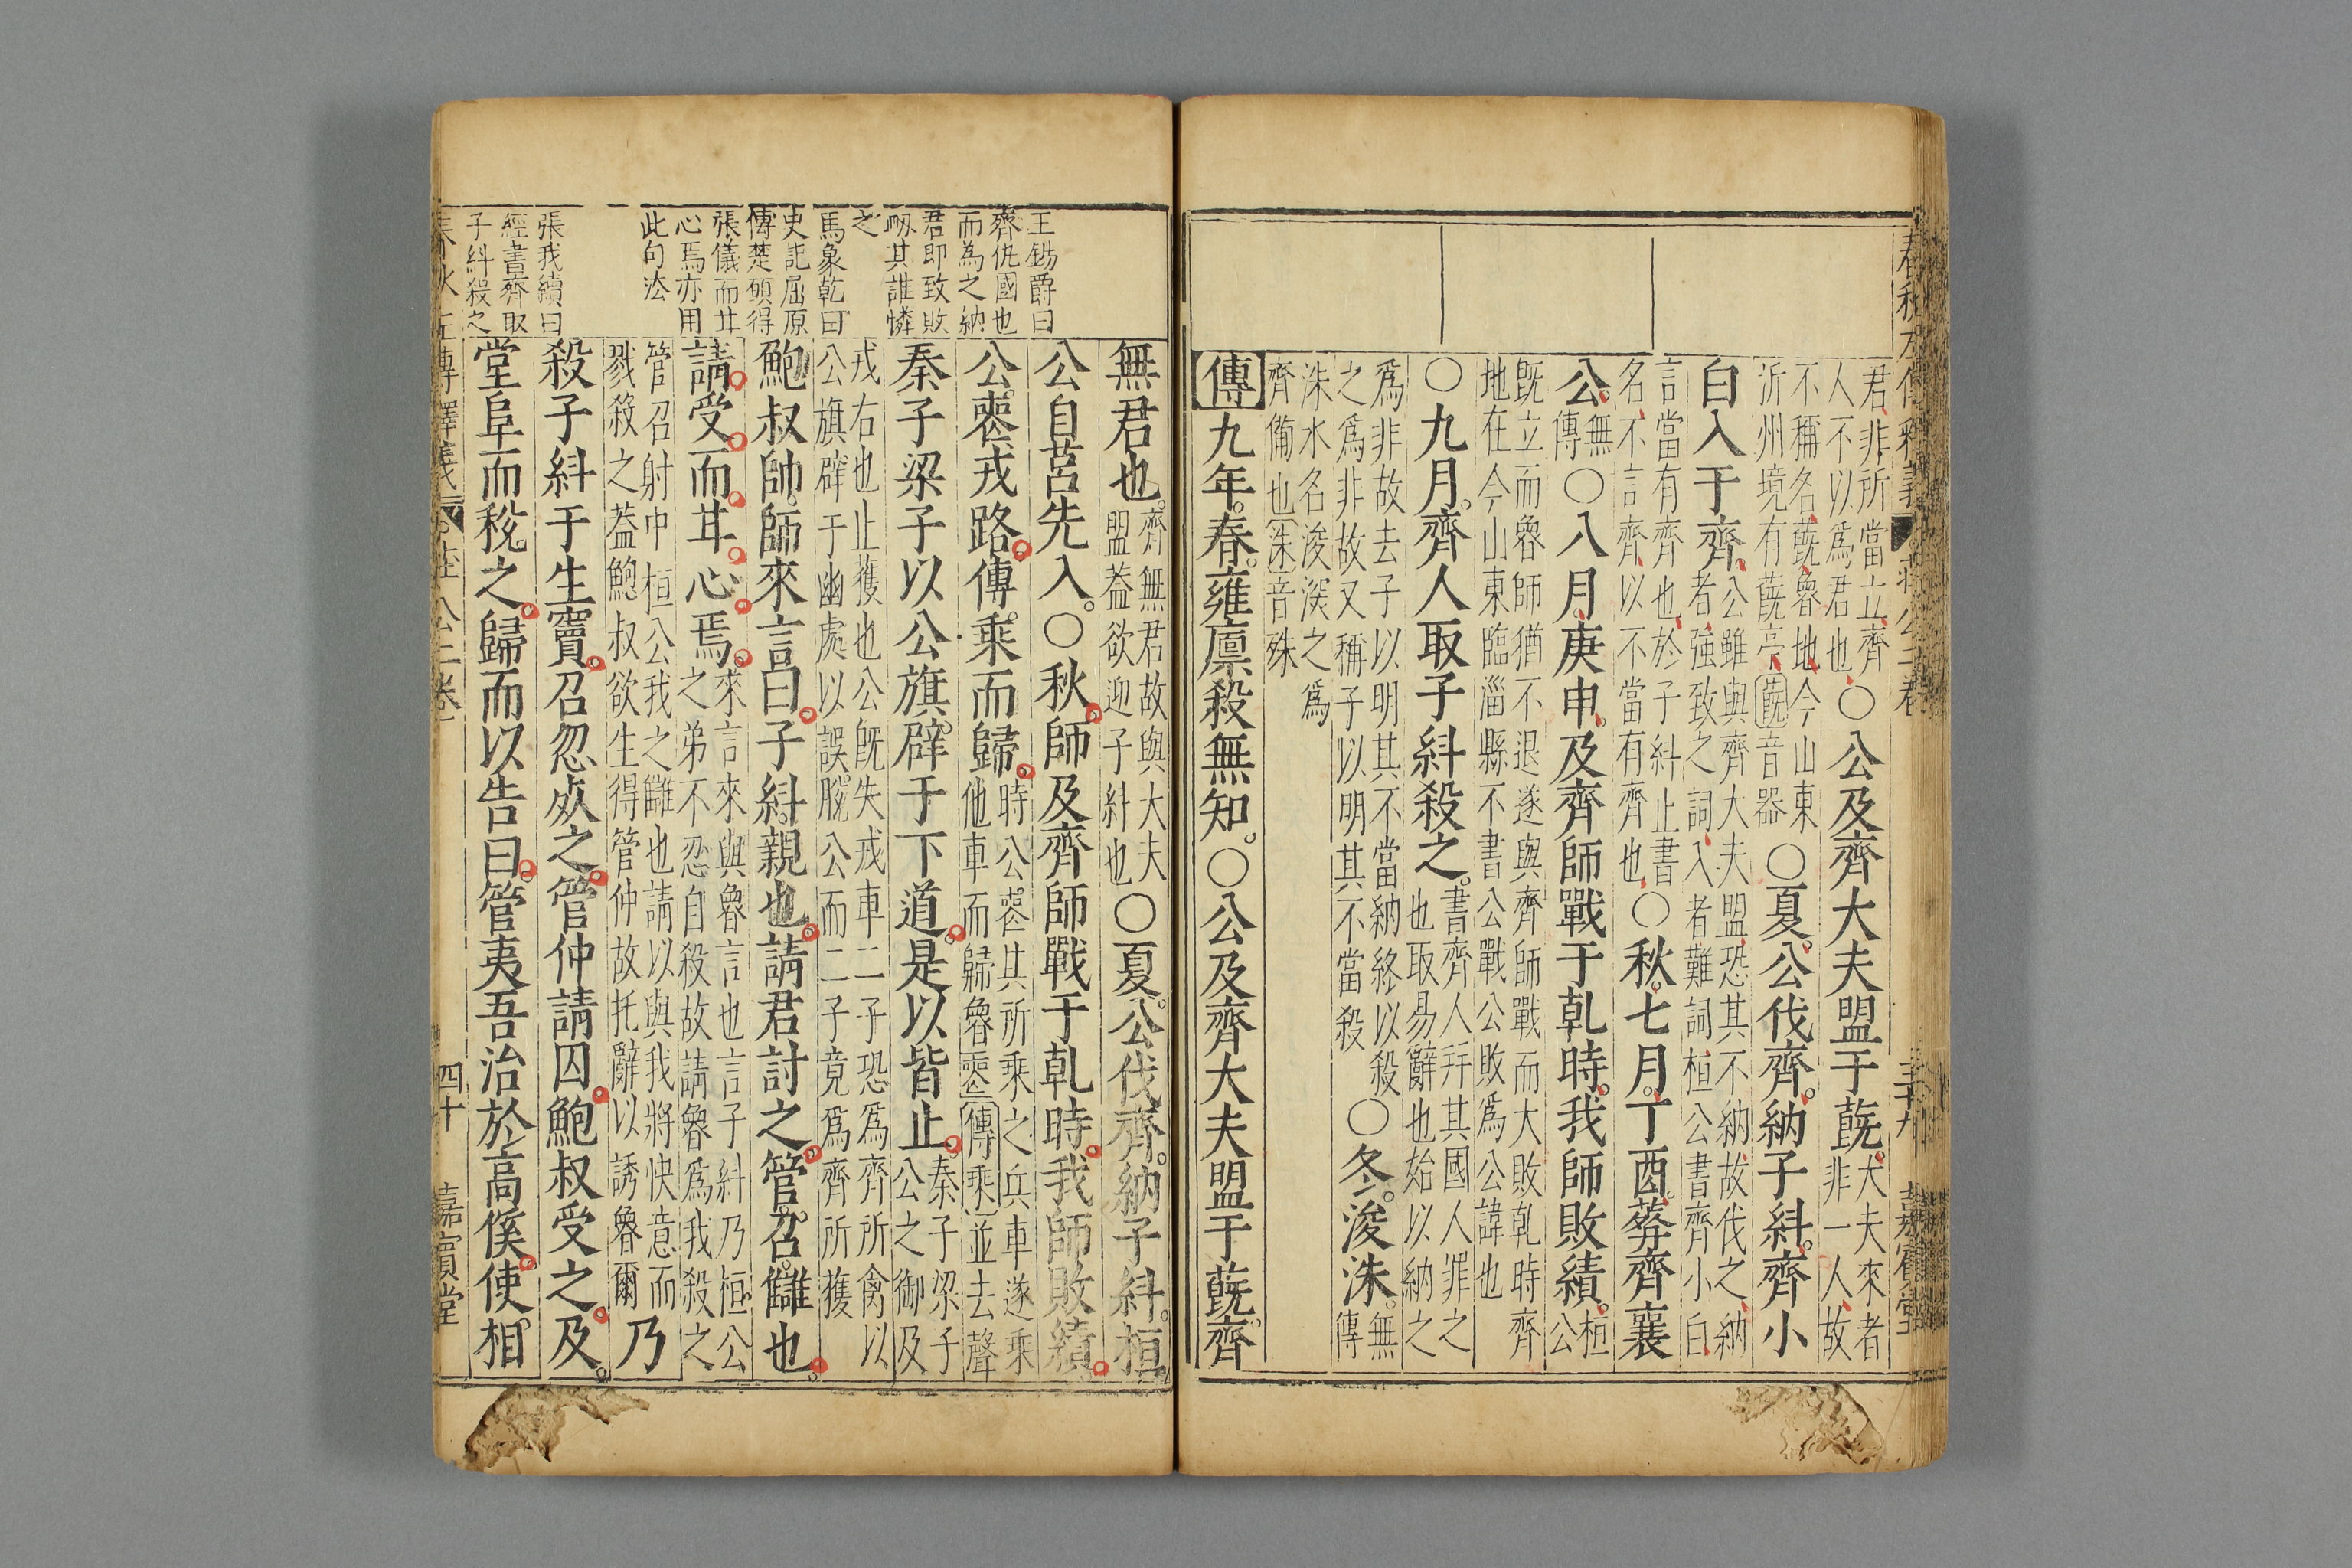 君非所當立齊
人不以爲君也○公及齊大夫盟于蔇大夫來者
非一人故
不稱名蔇魯地今山東
沂州境有蔇亭蔇音器○夏公伐齊納子糾齊小
白入于齊公雖與齊大夫盟恐其不納故伐之納
者強致之詞入者難詞桓公書齊小白
言當有齊也於子糾止書
名不言齊以不當有齊也○秋七月丁酉葬齊襄
公無
傳○八月庚申及齊師戰于乾時我師敗績桓
公
既立而魯師猶不退遂與齊師戰而大敗乾時齊
地在今山東臨淄縣不書公戰公敗爲公諱也
○九月齊人取子糾殺之書齊人幷其國人罪之
也取易辭也始以納之
爲非故去子以明其不當納終以殺
之爲非故又稱子以明其不當殺○冬浚洙無
傳
洙水名浚深之爲
齊備也洙音殊
傳九年春雍廩殺無知○公及齊大夫盟于蔇齊
無君也齊無君故與大夫
盟蓋欲迎子糾也○夏公伐齊納子糾桓
公自莒先入○秋師及齊師戰于乾時我師敗績
公喪戎路傳乘而歸時公喪其所乘之兵車遂乘
他車而歸魯喪傳乘並去聲
秦子梁子以公旗辟于下道是以皆止秦子梁子
公之御及
戎右也止獲也公既失戎車二子恐爲齊所禽以
公旗辟于幽處以誤脫公而二子竟爲齊所獲
鮑叔帥師來言曰子糾親也請君討之管召讎也
請受而甘心焉來言來與魯言也言子糾乃桓公
之弟不忍自殺故請魯爲我殺之
管召射中桓公我之讎也請以與我將快意而
戮殺之蓋鮑叔欲生得管仲故托辭以誘魯爾乃
殺子糾于生竇召忽死之管仲請囚鮑叔受之及
堂阜而稅之歸而以告曰管夷吾治於高傒使相
王錫爵曰
齊仇國也
而為之納
君即致敗
衂其誰憐
之
馬象乾曰
史記屈原
傳楚願得
張儀而甘
心焉亦用
此句法
張我續曰
經書齊取
子糾殺之
四十
嘉賓堂